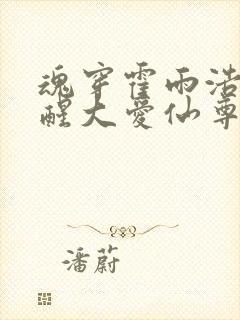 魂穿霍雨浩
醒大爱仙尊
潘蔚